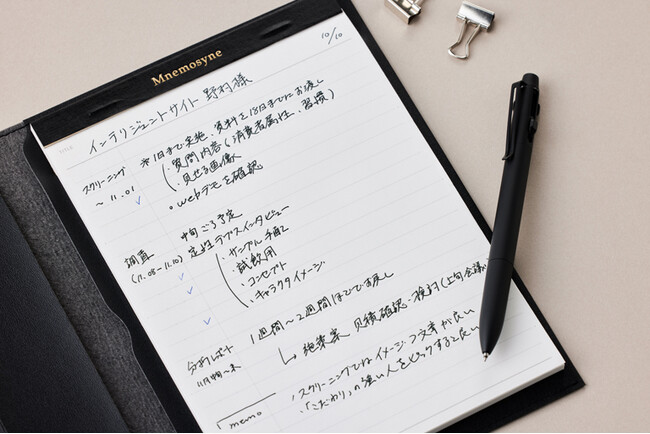 Mnemosyne
10/10
インテリジェントサイト 野村様
スクリーニング
~ 11.01
1日まで実施、資料を18日までにお渡し
・質問内容(消費者属性、習慣)
・見せる画像
・webデモを確認
調査
(11.08~11.10)
中旬ごろ予定
定性 デプスインタビュー
・サンプル手配
・試飲用
・コンセプト
・キャラクタイメージ
分析レポート
11月中旬~末
1週間~2週間ほどでお渡し
↳ 施策案 見積確認・検討(上旬会議
memo
・スクリーニングではイメージ→文章が良い
・「こだわり」の強い人をピックすると良い